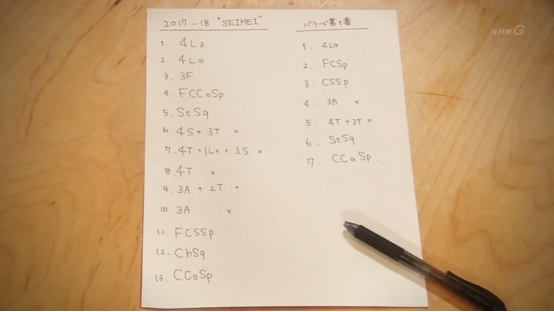 NHK G
2017-18 "SEIMEI"
1. 4Lz
2. 4Lo
3. 3F
4. FCCoSp
5. StSq
6. 4S + 3T x
7. 4T + 1Lo + 3S x
8. 4T x
9. 3A + 2T x
10. 3A x
11. FCSSp
12. ChSq
13. CCoSp
バラード第1番
1. 4Lo
2. FCSp
3. CSSp
4. 3A x
5. 4T + 3T x
6. StSq
7. CCoSp.